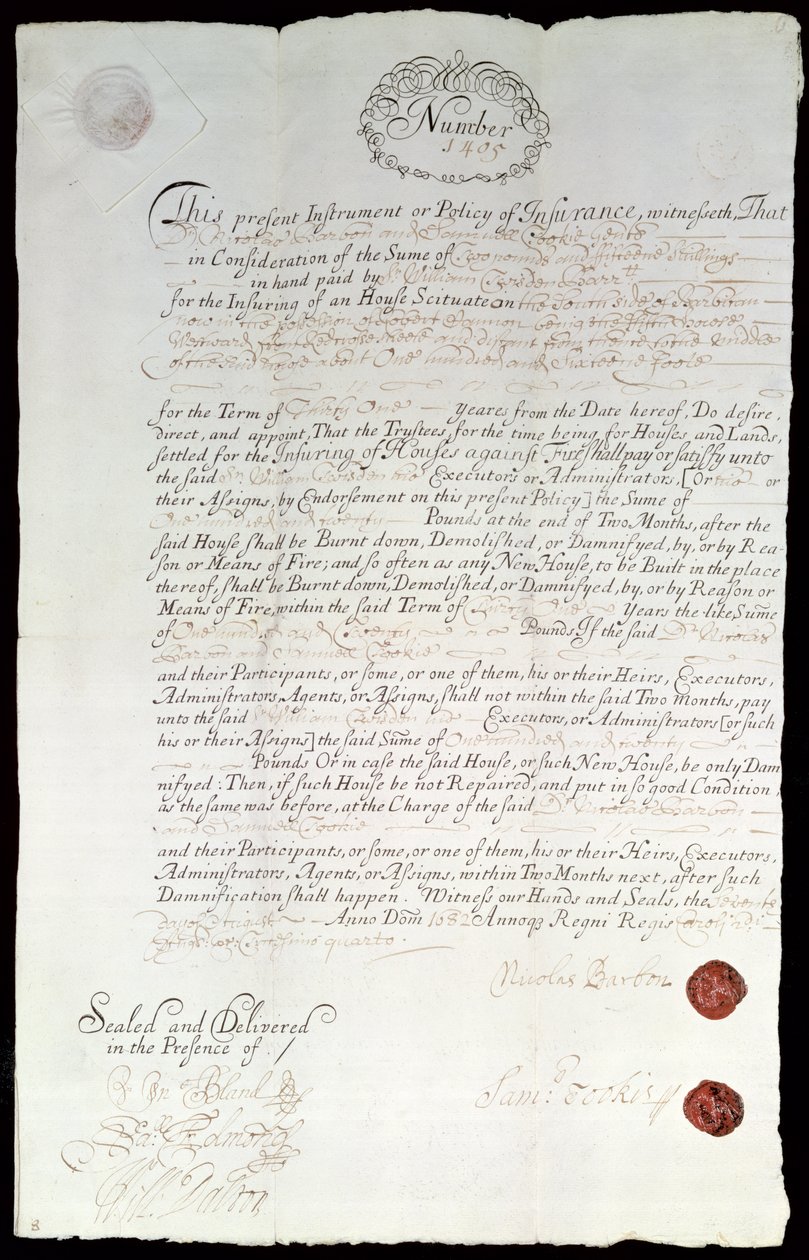 Number
1405
This present Instrument or Policy of Insurance, witnesseth, That
Dr. Nicolas Barbon and Samuell Tookie Gents
in Consideration of the Sume of Two pounds and fifteene Shillings
in hand paid by Sr. William Twisden Barrtt
for the Insuring of an House Scituate on the South side of Barbican
now in the possession of Robert Hannon being the fifth house
Westward from Redcrosse streete and distant from thence to the middle
of the said house about One hundred and Sixteene foote
for the Term of Thirty One Yeares from the Date hereof, Do desire,
direct, and appoint, That the Trustees, for the time being, for Houses, and Lands,
settled for the Insuring of Houses against Fire shall pay or satisfy unto
the said Sr. William Twisden his Executors or Administrators, [Or his or
their Assigns, by Endorsement on this present Policy] the Sume of
One hundred and twenty Pounds at the end of Two Months, after the
said House shall be Burnt down, Demolished, or Damnifyed, by, or by Rea-
son or Means of Fire; and so often as any New House, to be Built in the place
thereof, shall be Burnt down, Demolished, or Damnifyed, by, or by Reason or
Means of Fire, within the said Term of Thirty One Years the like Sume
of One hundred and Twenty Pounds If the said Dr. Nicolas
Barbon and Samuell Tookie
and their Participants, or some, or one of them, his or their Heirs, Executors,
Administrators, Agents, or Assigns, shall not within the said Two Months, pay
unto the said Sr William Twisden his Executors, or Administrators [or such
his or their Assigns] the said Sume of One hundred and twenty
Pounds Or in case the said House, or such New House, be only Dam
nifyed: Then, if such House be not Repaired, and put in so good Condition,
as the same was before, at the Charge of the said Dr. Nicolas Barbon
and Samuell Tookie
and their Participants, or some, or one of them, his or their Heirs, Executors,
Administrators, Agents, or Assigns, within Two Months next, after such
Damnification shall happen. Witness our Hands and Seals, the Seventh
day of August Anno Dom 1682 Annoq3 Regni Regis Caroli 2di
Angl: &c: Tricesimo quarto.
Nicolas Barbon
Sealed and Delivered
in the Presence of. /
Bland
Sam: Tookie
Edmonds
Will: Dalton
8